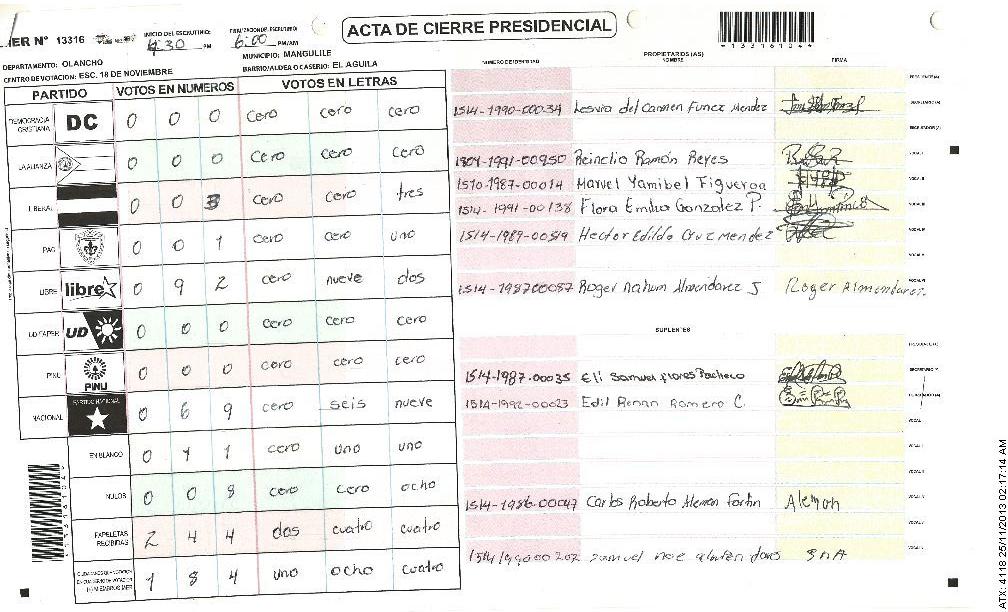 ACTA DE CIERRE PRESIDENCIAL
MER N° 13316
INICIO DEL ESCRUTINIO: 4:30 PM
FINALIZACION DEL ESCRUTINIO: 6:00 PM/AM
*13316104*
DEPARTAMENTO: OLANCHO
MUNICIPIO: MANGULILE
CENTRO DE VOTACION: ESC. 18 DE NOVIEMBRE
BARRIO/ALDEA O CASERIO: EL AGUILA
PARTIDO VOTOS EN NUMEROS VOTOS EN LETRAS
DEMOCRACIA CRISTIANA DC 0 0 0 cero cero cero
LA ALIANZA 0 0 0 cero cero cero
LIBERAL 0 0 3 cero cero tres
PAC 0 0 1 cero cero uno
LIBRE libre 0 9 2 cero nueve dos
UD FAPER UD 0 0 0 cero cero cero
PINU PINU 0 0 0 cero cero cero
NACIONAL PARTIDO NACIONAL 0 6 9 cero seis nueve
EN BLANCO 0 1 1 cero uno uno
NULOS 0 0 8 cero cero ocho
PAPELETAS RECIBIDAS 2 4 4 dos cuatro cuatro
1 8 4 uno ocho cuatro
NUMERO DE IDENTIDAD PROPIETARIOS (AS) NOMBRE FIRMA
1514-1990-00034 Lesvia del Carmen Funez Mendez
1804-1991-00950 Reinelio Ramón Reyes
1510-1987-00014 Marvel Yamibel Figueroa
1514-1991-00138 Flora Emilia Gonzalez P.
1514-1989-00519 Hector Edildo Cruz Mendez
1514-198700087 Roger Nahum Almendarez S Roger Almendarez
SUPLENTES
1514-1987-00035 Eli Samuel flores Pacheco
1514-1992-00023 Edil Renan Romero C.
1514-1986-00047 Carlos Roberto Aleman Fortin Aleman
Samuel noe
ATX: 4118 25/11/2013 02:17:14 AM